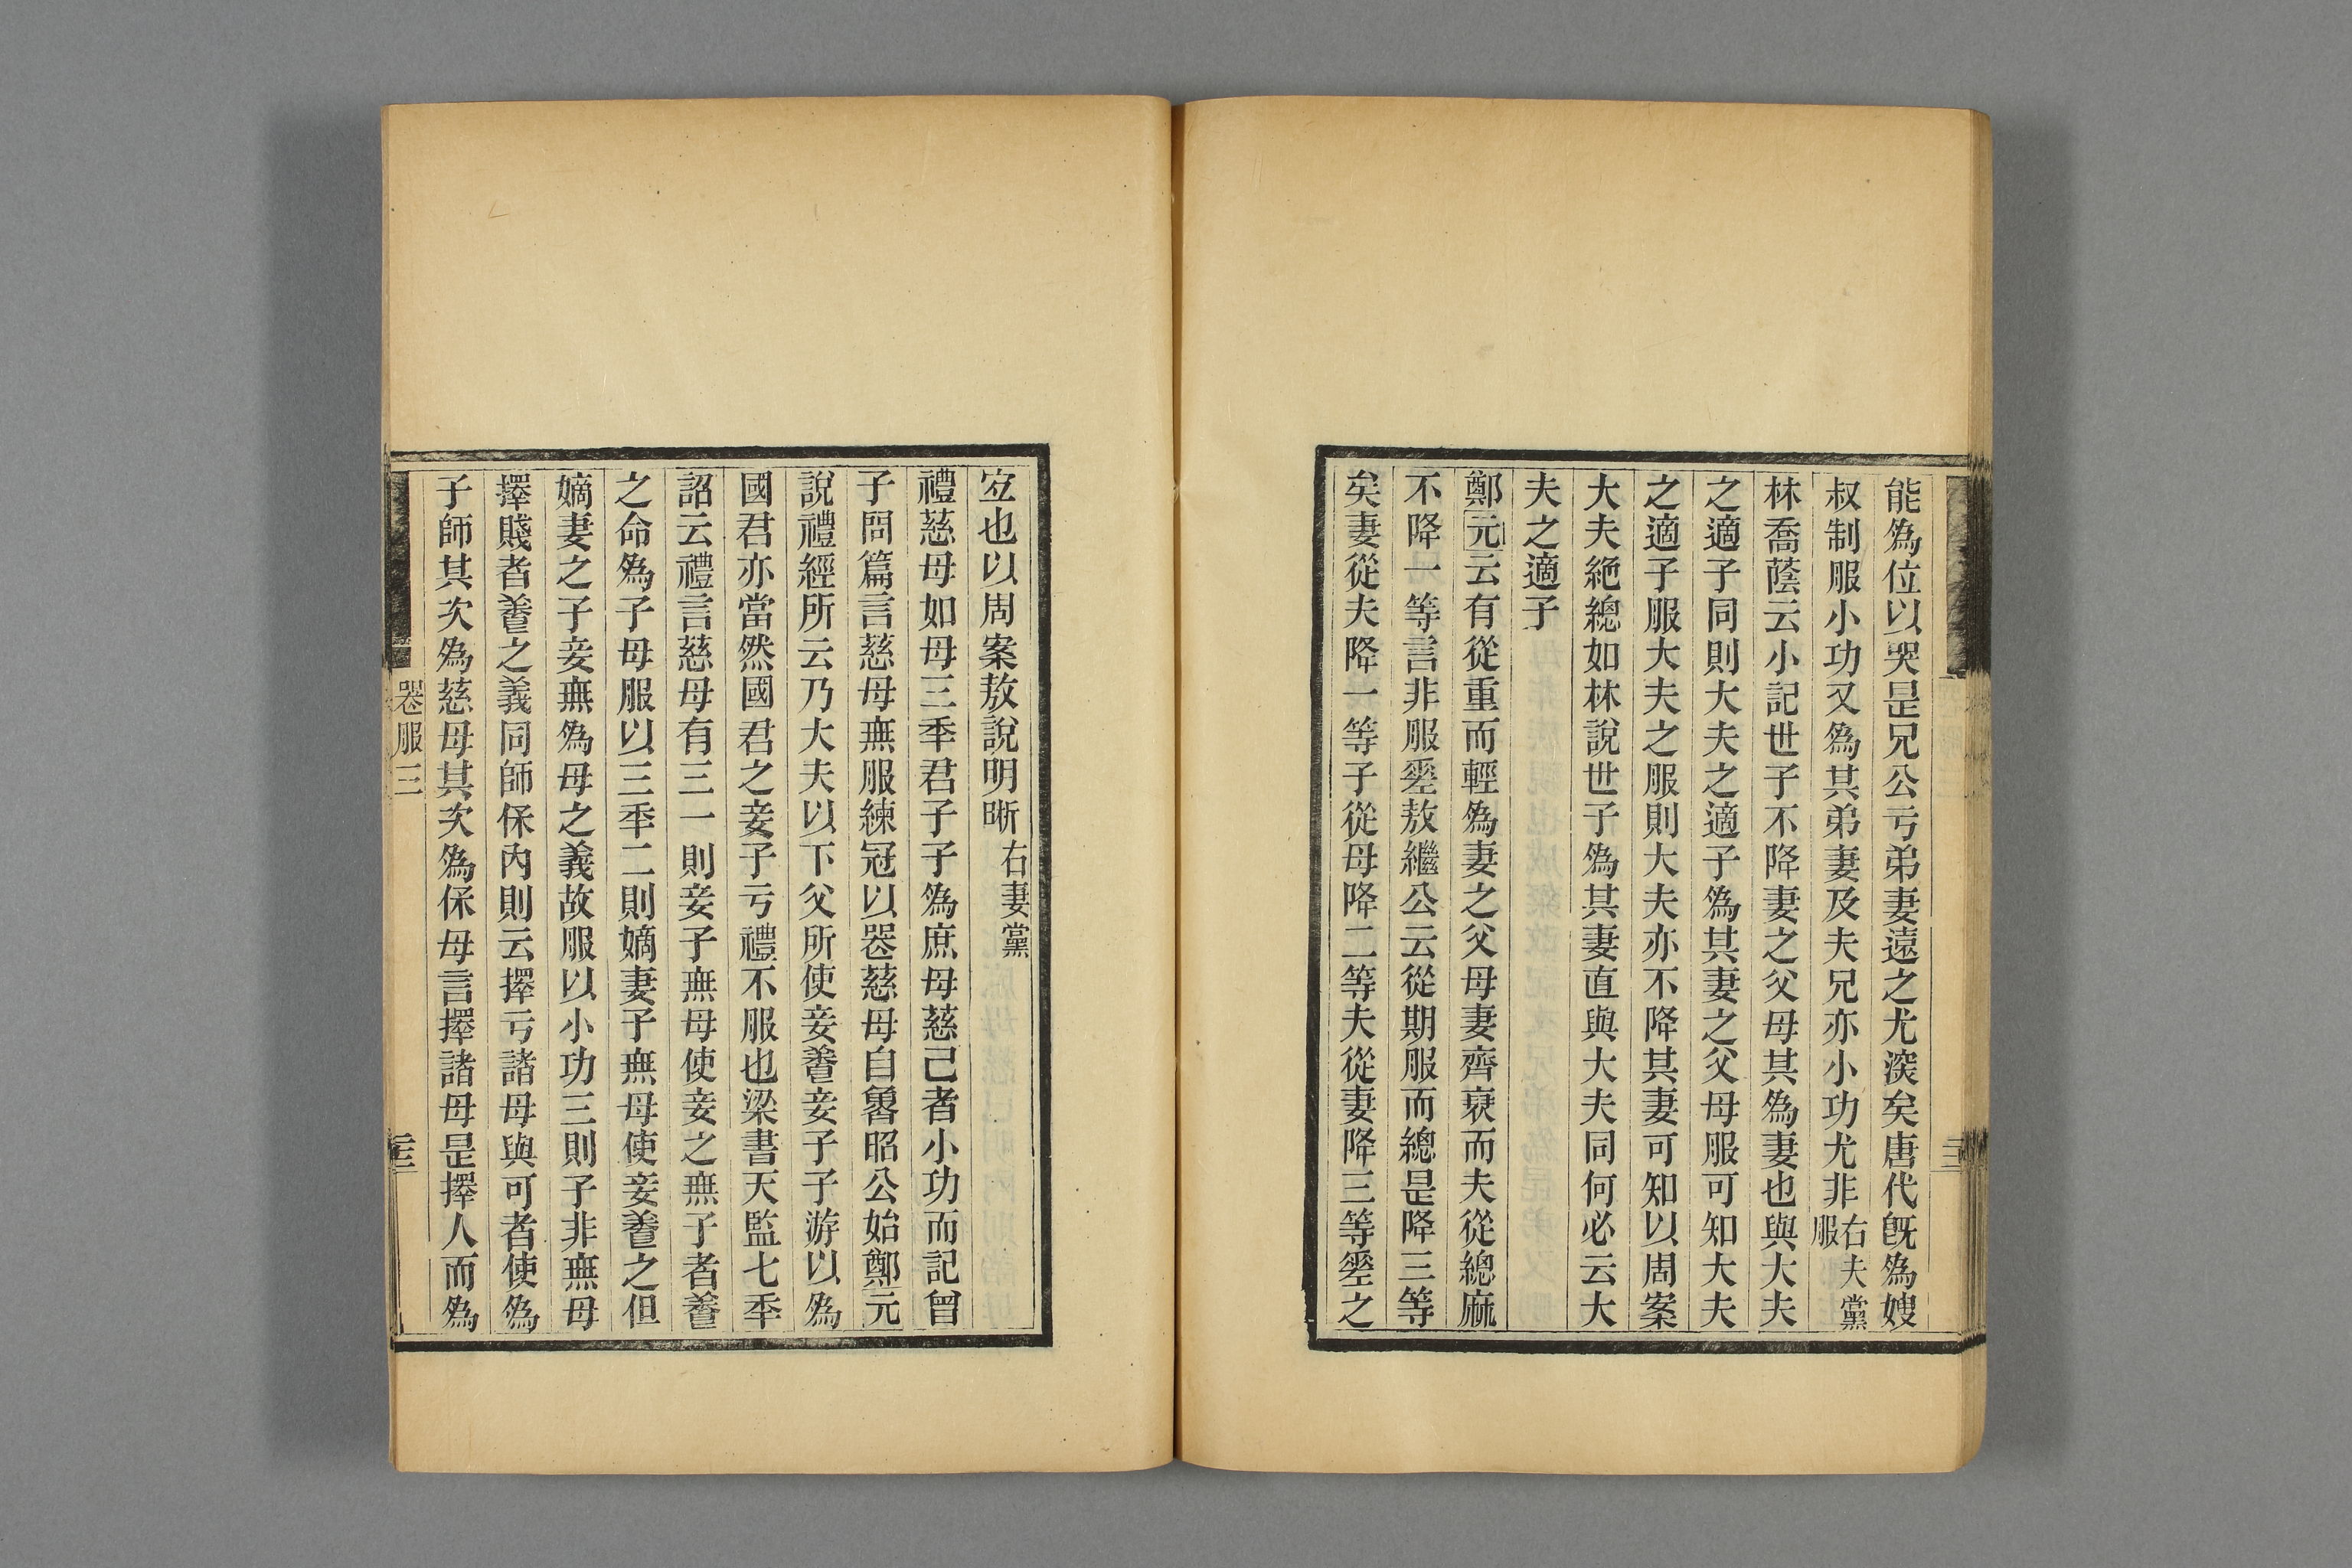 能為位以哭是兄公亏弟妻遠之尤深矣唐代旣為嫂
叔制服小功又為其弟妻及夫兄亦小功尤非右夫黨服
林喬蔭云小記世子不降妻之父母其為妻也與大夫
之適子同則大夫之適子為其妻之父母服可知大夫
之適子服大夫之服則大夫亦不降其妻可知以周案
大夫絶緦如林說世子為其妻直與大夫同何必云大
夫之適子
鄭元云有從重而輕為妻之父母妻齊衰而夫從緦麻
不降一等言非服差敖繼公云從期服而緦是降三等
矣妻從夫降一等子從母降二等夫從妻降三等差之
宐也以周案敖說明晰右妻黨
禮慈母如母三秊君子子為庶母慈己者小功而記曾
子問篇言慈母無服練冠以喪慈母自魯昭公始鄭元
說禮經所云乃大夫以下父所使妾養妾子子游以為
國君亦當然國君之妾子亏禮不服也梁書天監七秊
詔云禮言慈母有三一則妾子無母使妾之無子者養
之命為子母服以三秊二則嫡妻子無母使妾養之但
嫡妻之子妾無為母之義故服以小功三則子非無母
擇賤者養之義同師保內則云擇亏諸母與可者使為
子師其次為慈母其次為保母言擇諸母是擇人而為
喪服三